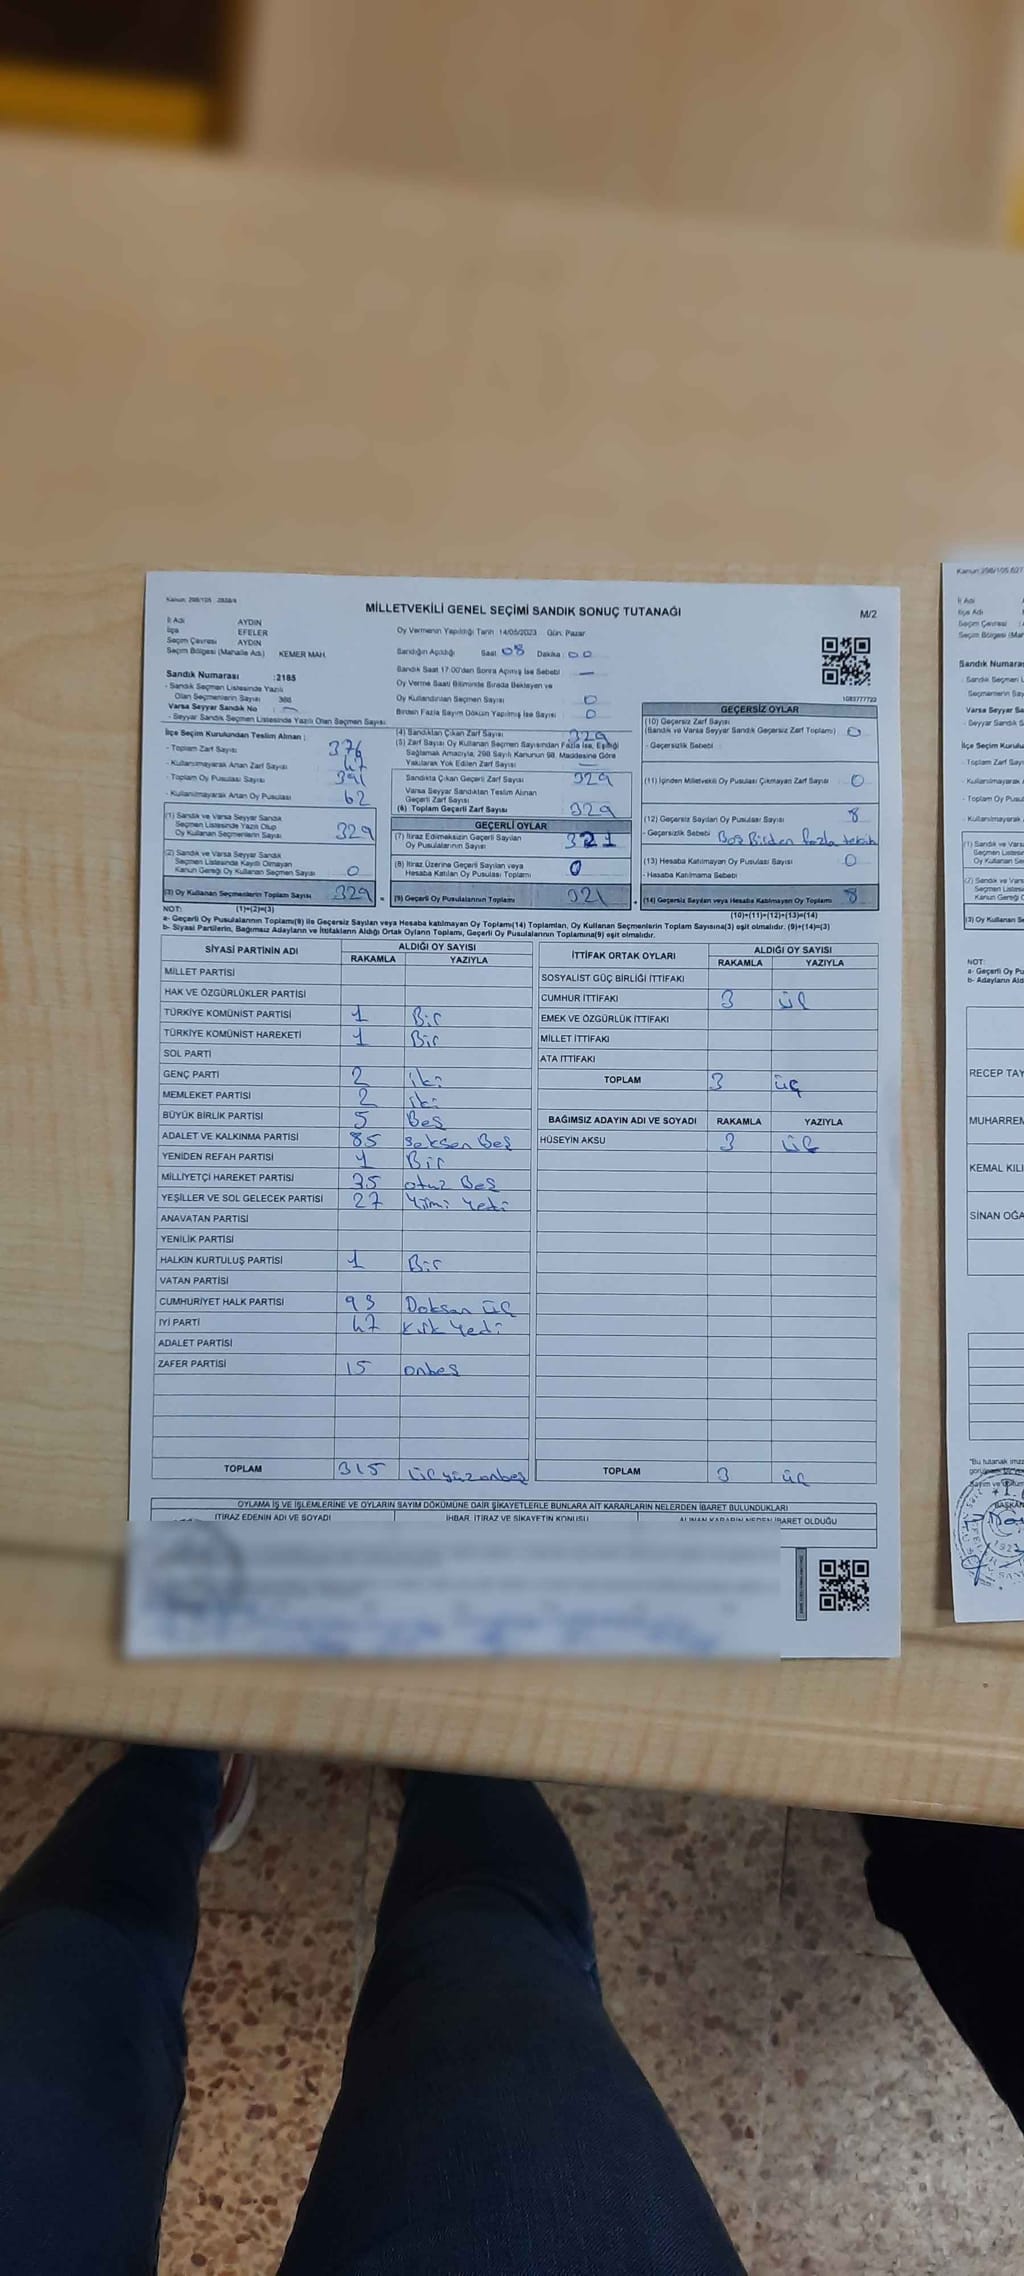 Kanun: 298/105
MİLLETVEKİLİ GENEL SEÇİMİ SANDIK SONUÇ TUTANAĞI
M/2
İl Adı AYDIN
İlçe EFELER
Seçim Çevresi AYDIN
Seçim Bölgesi (Mahalle Adı) KEMER MAH.
Oy Vermenin Yapıldığı Tarih 14/05/2023 Gün: Pazar
Sandığın Açıldığı Saat 08 Dakika: 00
Sandık Saat 17:00'den Sonra Açılmış İse Sebebi —
Oy Verme Saati Bitiminde Sırada Bekleyen ve
Oy Kullandırılan Seçmen Sayısı 0
Birden Fazla Sayım Döküm Yapılmış İse Sayısı 0
1083777722
Sandık Numarası :2185
- Sandık Seçmen Listesinde Yazılı
Olan Seçmenlerin Sayısı 386
Varsa Seyyar Sandık No : —
- Seyyar Sandık Seçmen Listesinde Yazılı Olan Seçmen Sayısı
İlçe Seçim Kurulundan Teslim Alınan ;
- Toplam Zarf Sayısı 376
- Kullanılmayarak Artan Zarf Sayısı 47
- Toplam Oy Pusulası Sayısı 391
- Kullanılmayarak Artan Oy Pusulası 62
(1) Sandık ve Varsa Seyyar Sandık
Seçmen Listesinde Yazılı Olup
Oy Kullanan Seçmenlerin Sayısı 329
(2) Sandık ve Varsa Seyyar Sandık
Seçmen Listesinde Kayıtlı Olmayan
Kanun Gereği Oy Kullanan Seçmen Sayısı 0
(3) Oy Kullanan Seçmenlerin Toplam Sayısı 329
(4) Sandıktan Çıkan Zarf Sayısı 329
(5) Zarf Sayısı Oy Kullanan Seçmen Sayısından Fazla İse, Eşitliği
Sağlamak Amacıyla, 298 Sayılı Kanunun 98. Maddesine Göre
Yakılarak Yok Edilen Zarf Sayısı —
Sandıkta Çıkan Geçerli Zarf Sayısı 329
Varsa Seyyar Sandıktan Teslim Alınan
Geçerli Zarf Sayısı
(6) Toplam Geçerli Zarf Sayısı 329
GEÇERLİ OYLAR
(7) İtiraz Edilmeksizin Geçerli Sayılan
Oy Pusulalarının Sayısı 321
(8) İtiraz Üzerine Geçerli Sayılan veya
Hesaba Katılan Oy Pusulası Toplamı 0
(9) Geçerli Oy Pusulalarının Toplamı 321
GEÇERSİZ OYLAR
(10) Geçersiz Zarf Sayısı
(Sandık ve Varsa Seyyar Sandık Geçersiz Zarf Toplamı) 0
- Geçersizlik Sebebi
(11) İçinden Milletvekili Oy Pusulası Çıkmayan Zarf Sayısı 0
(12) Geçersiz Sayılan Oy Pusulası Sayısı 8
- Geçersizlik Sebebi Boş Birden fazla
(13) Hesaba Katılmayan Oy Pusulası Sayısı 0
- Hesaba Katılmama Sebebi
(14) Geçersiz Sayılan veya Hesaba Katılmayan Oy Toplamı 8
NOT: (1)+(2)=(3)
(10)+(11)+(12)+(13)=(14)
a- Geçerli Oy Pusulalarının Toplamı(9) ile Geçersiz Sayılan veya Hesaba katılmayan Oy Toplamı(14) Toplamları, Oy Kullanan Seçmenlerin Toplam Sayısına(3) eşit olmalıdır. (9)+(14)=(3)
b- Siyasi Partilerin, Bağımsız Adayların ve İttifakların Aldığı Ortak Oyların Toplamı, Geçerli Oy Pusulalarının Toplamına(9) eşit olmalıdır.
SİYASİ PARTİNİN ADI ALDIĞI OY SAYISI
RAKAMLA YAZIYLA
MİLLET PARTİSİ
HAK VE ÖZGÜRLÜKLER PARTİSİ
TÜRKİYE KOMÜNİST PARTİSİ 1 Bir
TÜRKİYE KOMÜNİST HAREKETİ 1 Bir
SOL PARTİ
GENÇ PARTİ 2 iki
MEMLEKET PARTİSİ 2 iki
BÜYÜK BİRLİK PARTİSİ 5 Beş
ADALET VE KALKINMA PARTİSİ 85 seksen Beş
YENİDEN REFAH PARTİSİ 1 Bir
MİLLİYETÇİ HAREKET PARTİSİ 35 otuz Beş
YEŞİLLER VE SOL GELECEK PARTİSİ 27 Yirmi Yedi
ANAVATAN PARTİSİ
YENİLİK PARTİSİ
HALKIN KURTULUŞ PARTİSİ 1 Bir
VATAN PARTİSİ
CUMHURİYET HALK PARTİSİ 93 Doksan üç
İYİ PARTİ 47 Kırk Yedi
ADALET PARTİSİ
ZAFER PARTİSİ 15 onbeş
TOPLAM 315 üçyüzonbeş
İTTİFAK ORTAK OYLARI ALDIĞI OY SAYISI
RAKAMLA YAZIYLA
SOSYALİST GÜÇ BİRLİĞİ İTTİFAKI
CUMHUR İTTİFAKI 3 üç
EMEK VE ÖZGÜRLÜK İTTİFAKI
MİLLET İTTİFAKI
ATA İTTİFAKI
TOPLAM 3 üç
BAĞIMSIZ ADAYIN ADI VE SOYADI RAKAMLA YAZIYLA
HÜSEYİN AKSU 3 üç
TOPLAM 3 üç
OYLAMA İŞ VE İŞLEMLERİNE VE OYLARIN SAYIM DÖKÜMÜNE DAİR ŞİKAYETLERLE BUNLARA AİT KARARLARIN NELERDEN İBARET BULUNDUKLARI
İTİRAZ EDENİN ADI VE SOYADI İHBAR, İTİRAZ VE ŞİKAYETİN KONUSU ALINAN KARARIN NEDEN İBARET OLDUĞU
Kanun:298/105
İl Adı
İlçe Adı
Seçim Çevresi
Seçim Bölgesi (Mah
Sandık Numaras
- Sandık Seçmen L
Seçmenlerin Sayıs
Varsa Seyyar San
- Seyyar Sandık S
İlçe Seçim Kurulu
- Toplam Zarf Say
- Kullanılmayarak A
- Toplam Oy Pusu
- Kullanılmayarak
(1) Sandık ve Vars
Seçmen Listes
Oy Kullanan Se
(2) Sandık ve Vars
Seçmen Listes
Kanun Gereği O
(3) Oy Kullanan Se
NOT:
a- Geçerli Oy Pu
b- Adayların Ald
RECEP TAY
MUHARREM
KEMAL KILI
SİNAN OĞA
"Bu tutanak imza